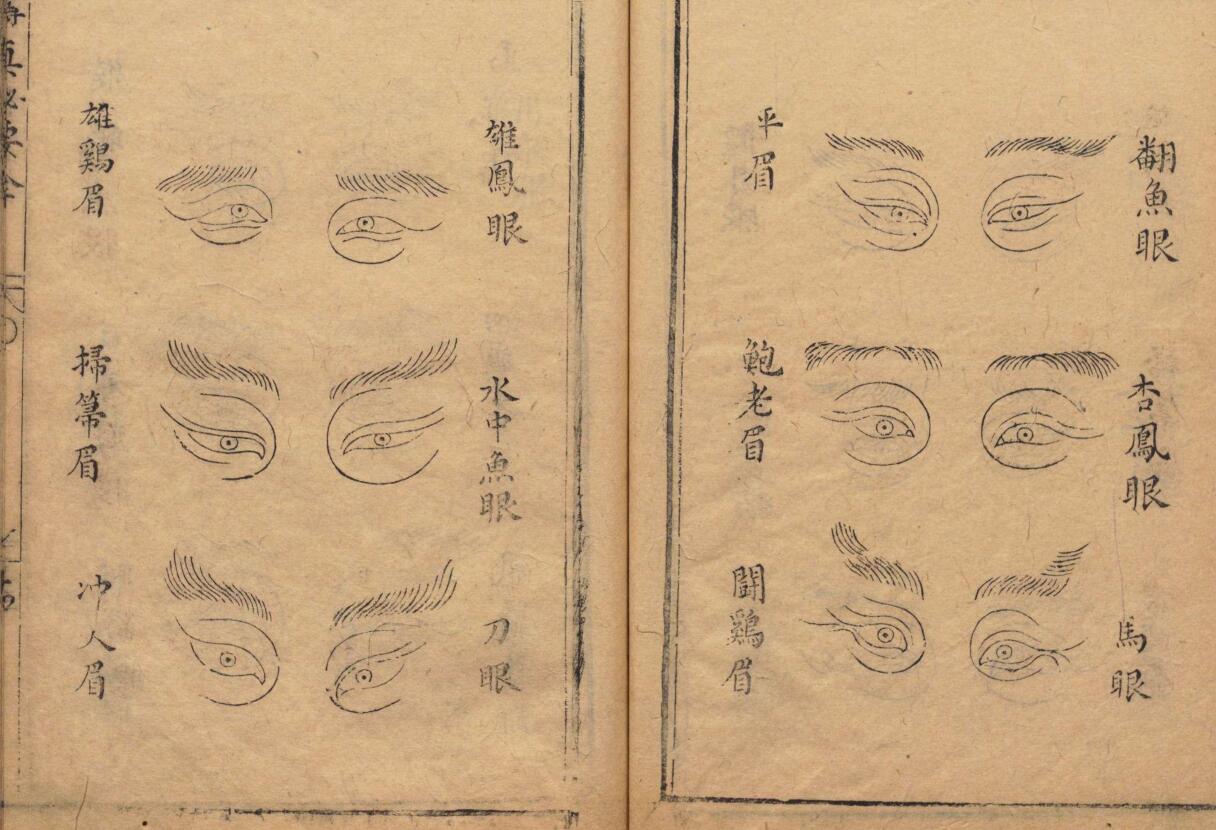 翻魚眼
平眉
杏鳳眼
鮑老眉
馬眼
鬪鷄眉
雄鳳眼
雄鷄眉
水中魚眼
掃箒眉
刀眼
冲人眉
真必要